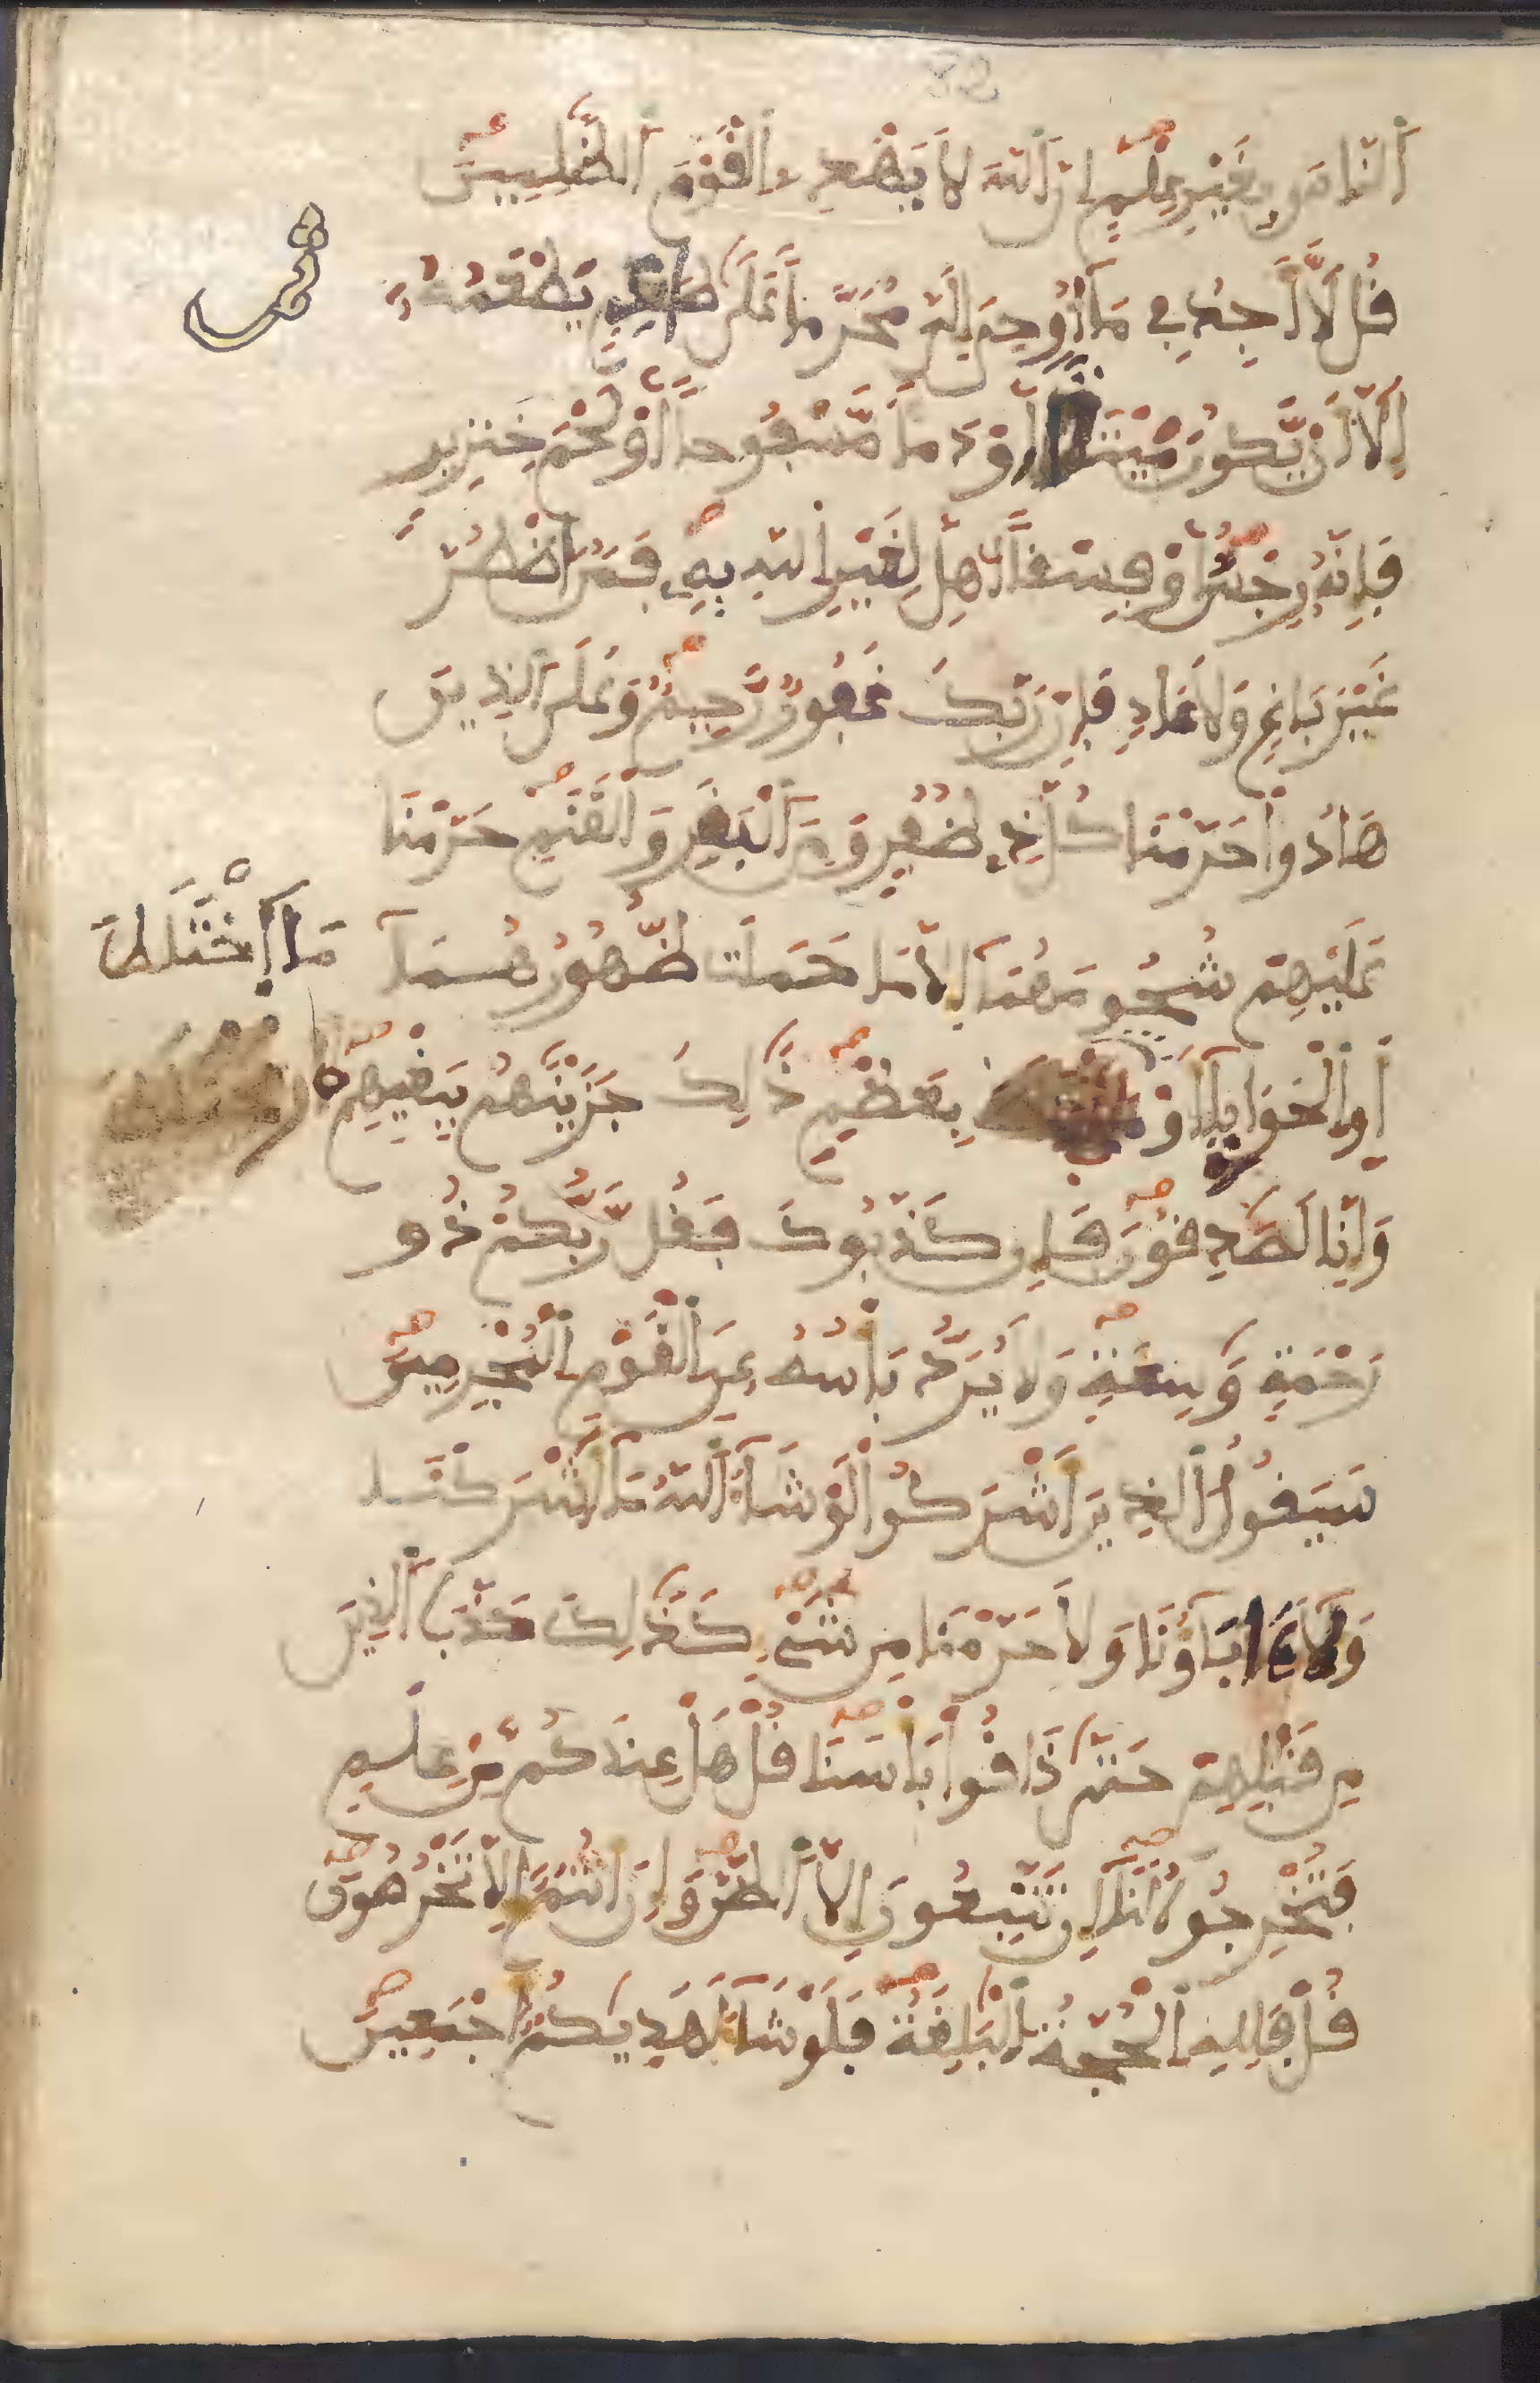 اَ۬لنَّاسَ بِغَيْرِ عِلْمٍ اِنَّ اَ۬للَّهَ لَا يَهْدِے اِ۬لْقَوْمَ اَ۬لظَّٰلِمِينَ
قُل لَّا أَجِدُ فِے مَا أُوحِيَ إِلَيَّ مُحَرَّماً عَلَىٰ طَاعِمٍ يَطْعَمُهُ
إِلَّا أَنْ يَّكُونَ مَيْتَةً أَوْ دَماً مَّسْفُوحاً أَوْ لَحْمَ خِنزِيرٍ
فَإِنَّهُ رِجْسٌ أَوْ فِسْقاً أُهِلَّ لِغَيْرِ اِ۬للَّهِ بِهِ فَمَنُ اُ۟ضْطُرَّ
غَيْرَ بَاغٍ وَلَا عَادٍ فَإِنَّ رَبَّكَ غَفُورٌ رَّحِيمٌ وَعَلَى اَ۬لذِينَ
هَادُواْ حَرَّمْنَا كُلَّ ذِے ظُفُرٍ وَمِنَ اَ۬لْبَقَرِ وَالْغَنَمِ حَرَّمْنَا
عَلَيْهِمْ شُحُومَهُمَا إِلَّا مَا حَمَلَت ظُّهُورُهُمَا
أَوِ اِ۬لْحَوَايَا أَوْ بِعَظْمٍ ذَٰلِكَ جَزَيْنَٰهُم بِبَغْيِهِمْ
مَا اَ۪خْتَلَطَ
وَإِنَّا لَصَٰدِقُونَ فَإِن كَذَّبُوكَ فَقُل رَّبُّكُمْ ذُو
رَحْمَةٍ وَٰسِعَةٍ وَلَا يُرَدُّ بَأْسُهُ عَنِ اِ۬لْقَوْمِ اِ۬لْمُجْرِمِينَ
سَيَقُولُ اُ۬لذِينَ أَشْرَكُواْ لَوْ شَاءَ اَ۬للَّهُ مَا أَشْرَكْنَا
وَلَا ءَابَاؤُنَا وَلَا حَرَّمْنَا مِن شَےْءٍ كَذَٰلِكَ كَذَّبَ اَ۬لذِينَ
مِن قَبْلِهِمْ حَتَّىٰ ذَاقُواْ بَأْسَنَا قُلْ هَلْ عِندَكُم مِّنْ عِلْمٍ
فَتُخْرِجُوهُ لَنَا إِن تَتَّبِعُونَ إِلَّا اَ۬لظَّنَّ وَإِنَ اَنتُمُ إِلَّا تَخْرُصُونَ
قُلْ فَلِلهِ اِ۬لْحُجَّةُ اُ۬لْبَٰلِغَةُ فَلَوْ شَاءَ لَهَدِيكُمُ أَجْمَعِينَ